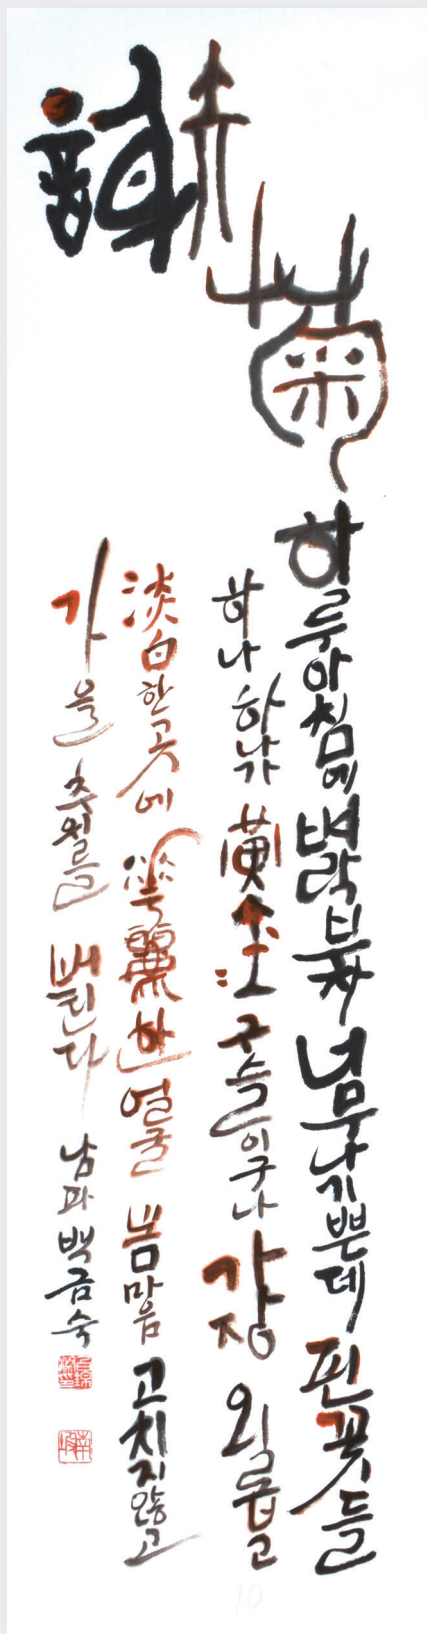 菊
하루아침에 벼락부자 너무나 기쁜데 핀 꽃들
하나하나가 黃金 구슬이구나 가장 외롭고
淡白한 곳에 華麗한 얼굴 봄마음 고치지 않고
가을 추위를 버틴다 남파 백금숙